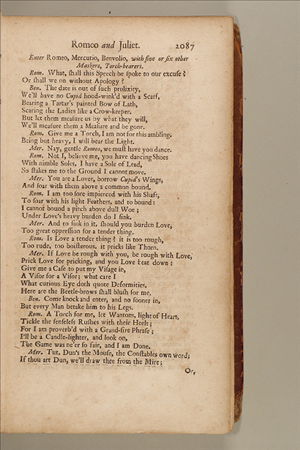 Romeo and Juliet. 2087
Enter Romeo, Mercutio, Benvolio, with five or six other
Maskers, Torch-bearers.
Rom. What, shall this Speech be spoke to our excuse?
Or shall we on without Apology?
Ben. The date is out of such prolixity,
We'll have no Cupid hood-wink'd with a Scarf,
Bearing a Tartar's painted Bow of Lath,
Scaring the Ladies like a Crow-keeper.
But let them measure us by what they will,
We'll measure them a Measure and be gone.
Rom. Give me a Torch, I am not for this ambling,
Being but heavy, I will bear the Light.
Mer. Nay, gentle Romeo, we must have you dance.
Rom. Not I, believe me, you have dancing Shoes
With nimble Soles, I have a Sole of Lead,
So stakes me to the Ground I cannot move.
Mer. You are a Lover, borrow Cupid's Wings,
And soar with them above a common bound.
Rom. I am too sore impierced with his Shaft,
To soar with his light Feathers, and to bound:
I cannot bound a pitch above dull Woe;
Under Love's heavy burden do I sink.
Mer. And to sink in it, should you burden Love,
Too great oppression for a tender thing.
Rom. Is Love a tender thing? it is too rough,
Too rude, too boisterous, it pricks like Thorn.
Mer. If Love be rough with you, be rough with Love,
Prick Love for pricking, and you Love beat down:
Give me a Case to put my Visage in,
A Visor for a Visor; what care I
What curious Eye doth quote Deformities,
Here are the Beetle-brows shall blush for me.
Ben. Come knock and enter, and no sooner in,
But every Man betake him to his Legs.
Rom. A Torch for me, let Wantons, light of Heart,
Tickle the senseless Rushes with their Heels;
For I am proverb'd with a Grand-sire Phrase;
I'll be a Candle-lighter, and look on,
The Game was ne'er so fair, and I am Done.
Mer. Tut, Dun's the Mouse, the Constables own word;
If thou art Dun, we'll draw thee from the Mire;
Or,